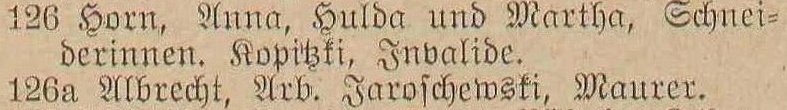 126 Horn, Anna, Hulda und Martha, Schnei-
derinnen. Kopitzki, Invalide.
126a Albrecht, Arb. Jaroschewski, Maurer.